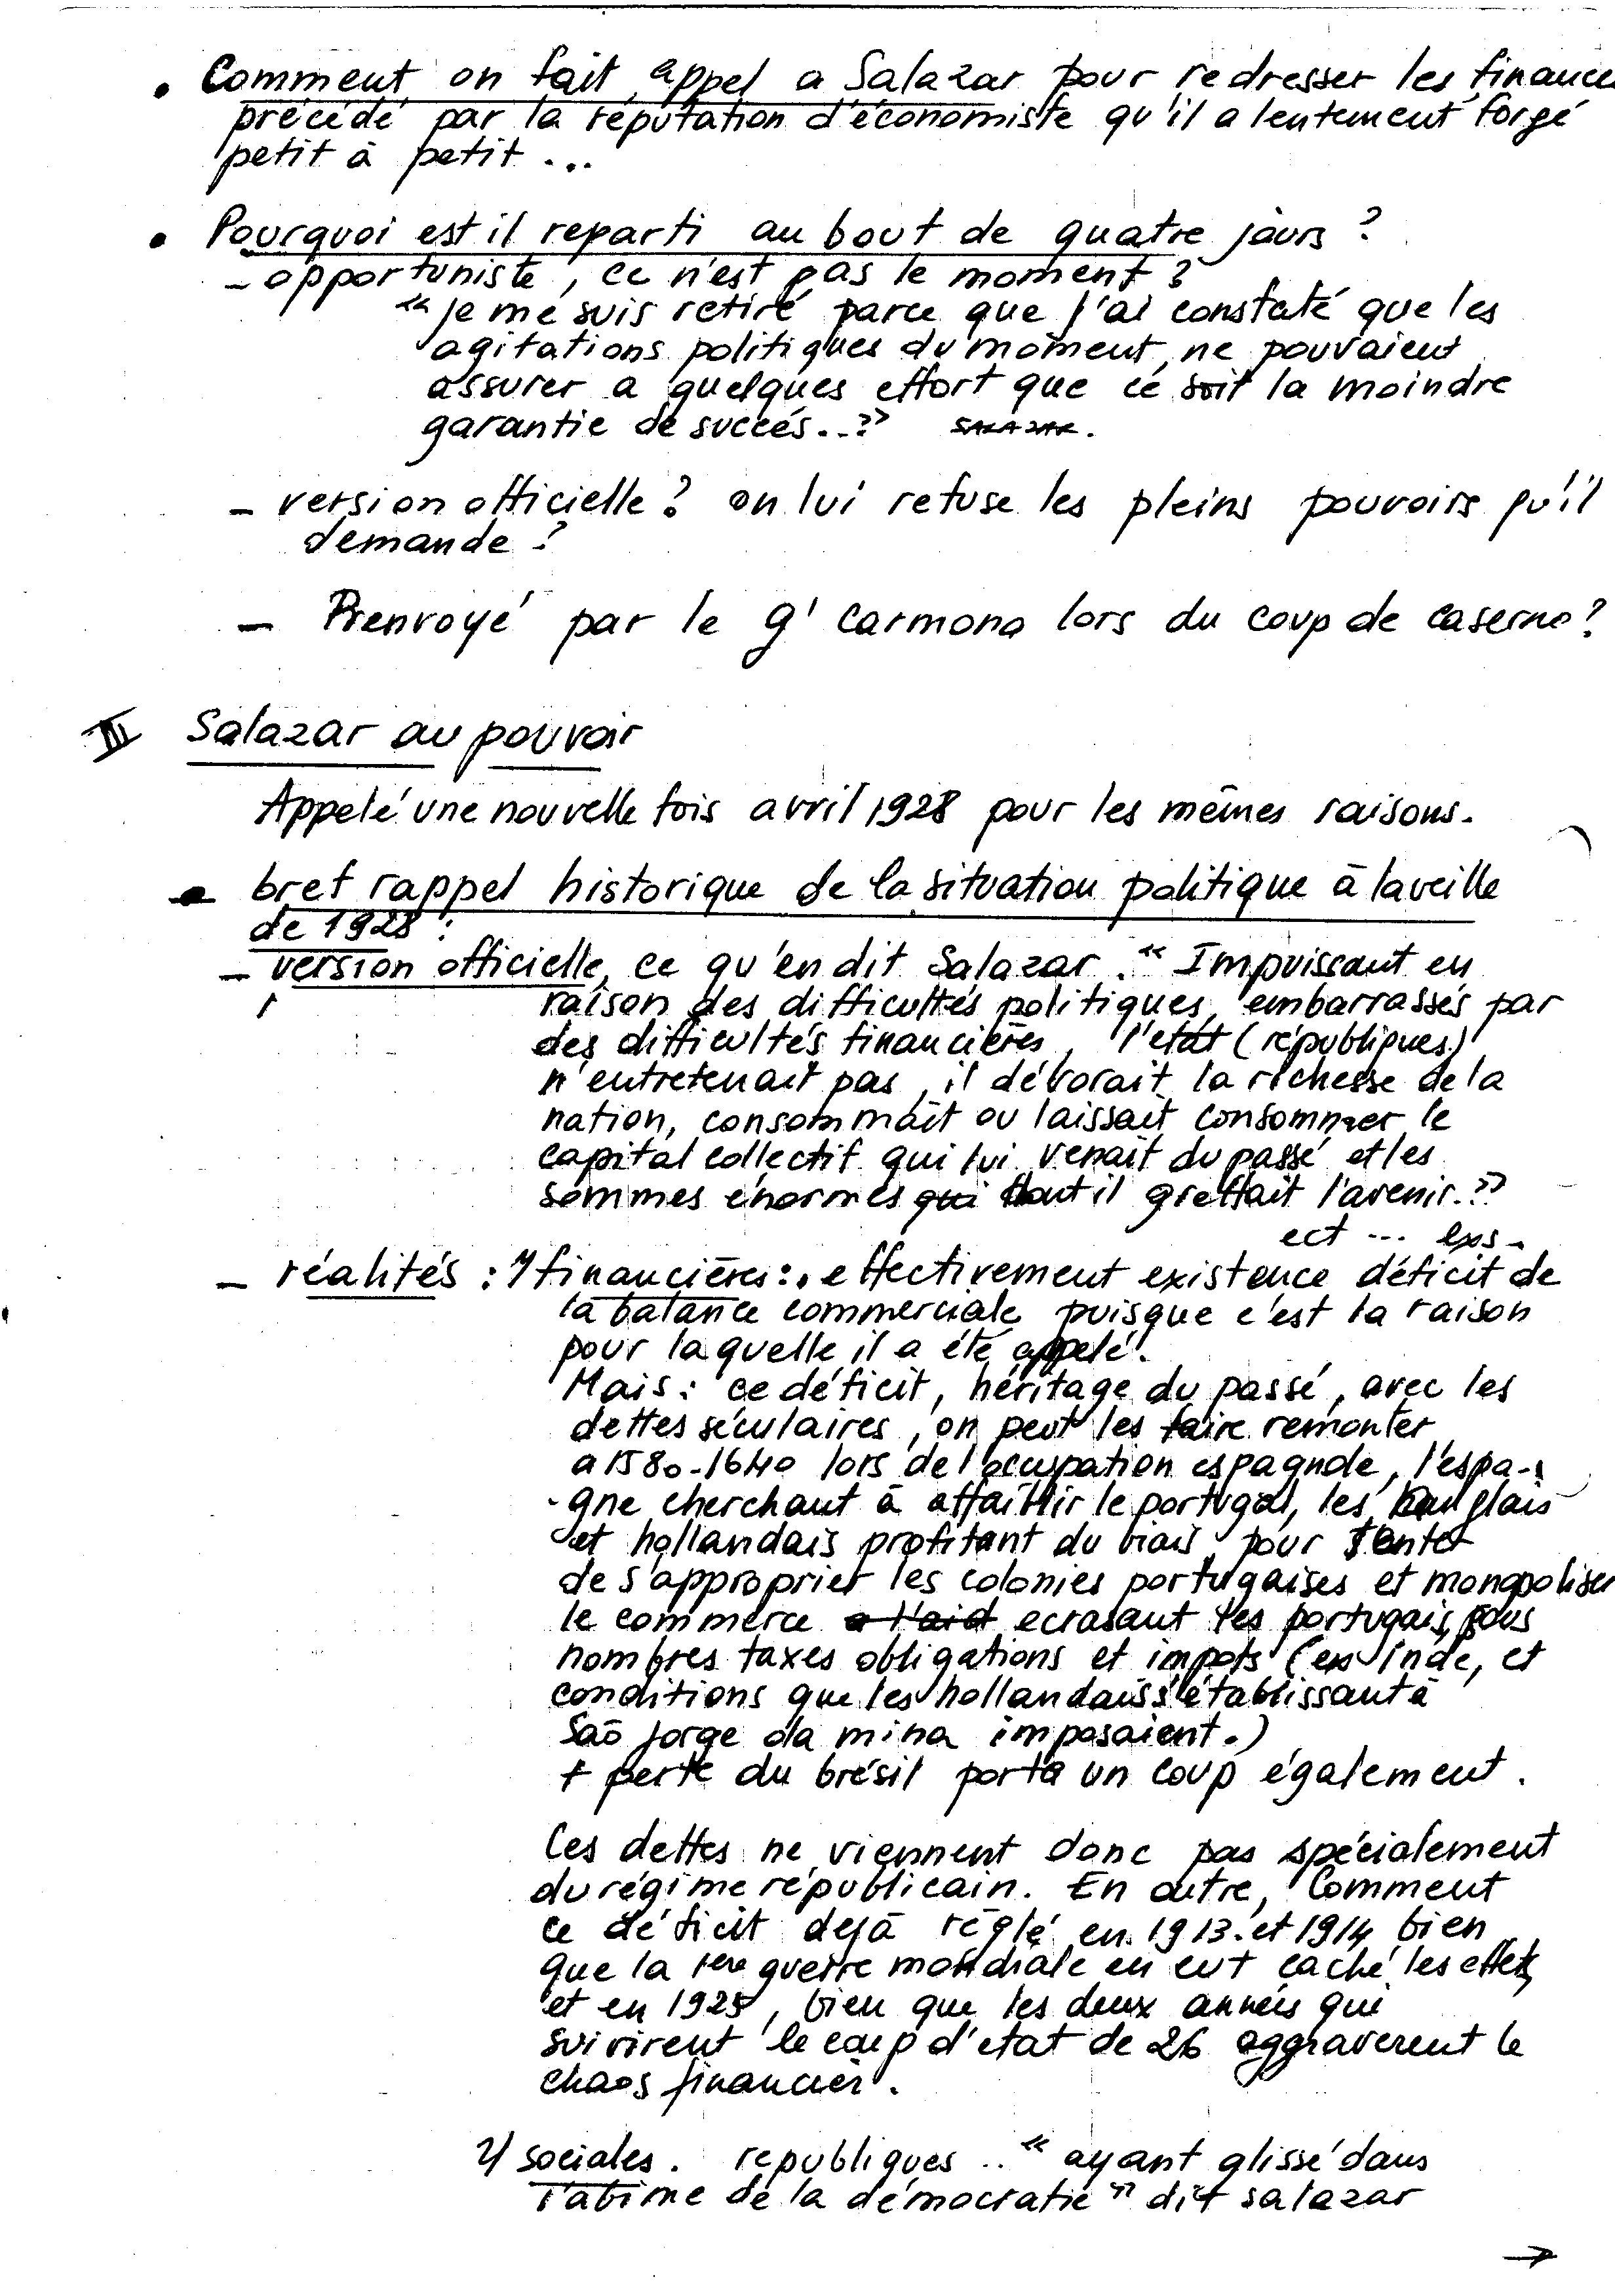 • Comment on fait appel a Salazar pour redresser les finances
précédé par la réputation d'économiste qu'il a lentement forgé
petit à petit ...
• Pourquoi est il reparti au bout de quatre jours ?
- opportuniste, ce n'est pas le moment ?
" je me suis retiré parce que j'ai constaté que les
agitations politiques du moment ne pouvaient
assurer a quelques effort que ce soit la moindre
garantie de succés..?" SALAZAR.
- version officielle ? on lui refuse les pleins pouvoirs qu'il
demande ?
- Renvoyé par le gl Carmona lors du coup de caserne ?
III Salazar au pouvoir
Appelé une nouvelle fois avril 1928 pour les mêmes raisons.
• bref rappel historique de la situation politique à la veille
de 1928 :
- version officielle, ce qu'en dit Salazar. " Impuissant en
raison des difficultés politiques, embarrassés par
des difficultés financières, l'etat (républiques)
n'entretenait pas, il dévorait la richesse de la
nation, consommait ou laissait consommer le
capital collectif qui lui venait du passé et les
sommes énormes qui dont il greffait l'avenir.?"
ect ...
- réalités : 1/ financières : • effectivement existence déficit de
la balance commerciale puisque c'est la raison
pour laquelle il a été appelé.
Mais : ce déficit, héritage du passé, avec les
dettes séculaires, on peut les faire remonter
a 1580-1640 lors de l'occupation espagnole, l'espa-
-gne cherchant à affaiblir le portugal, les anglais
et hollandais profitant du biais pour tenter
de s'approprier les colonies portugaises et monopoliser
le commerce a l'aid ecrasant les portugais, sous
nombres taxes obligations et impots (ex Inde, et
conditions que les hollandais s'établissant à
Saõ Jorge da mina imposaient.)
+ perte du brésil porta un coup également.
Ces dettes ne viennent donc pas spécialement
du régime républicain. En outre, Comment
ce déficit dejà réglé en 1913 et 1914 bien
que la 1ere guerre mondiale en eut caché les effets,
et en 1925, bien que les deux années qui
suivirent le coup d'etat de 26 aggraverent le
chaos financier.
2/ sociales. republiques .. " ayant glissé dans
l'abime de la démocratie " dit salazar
→